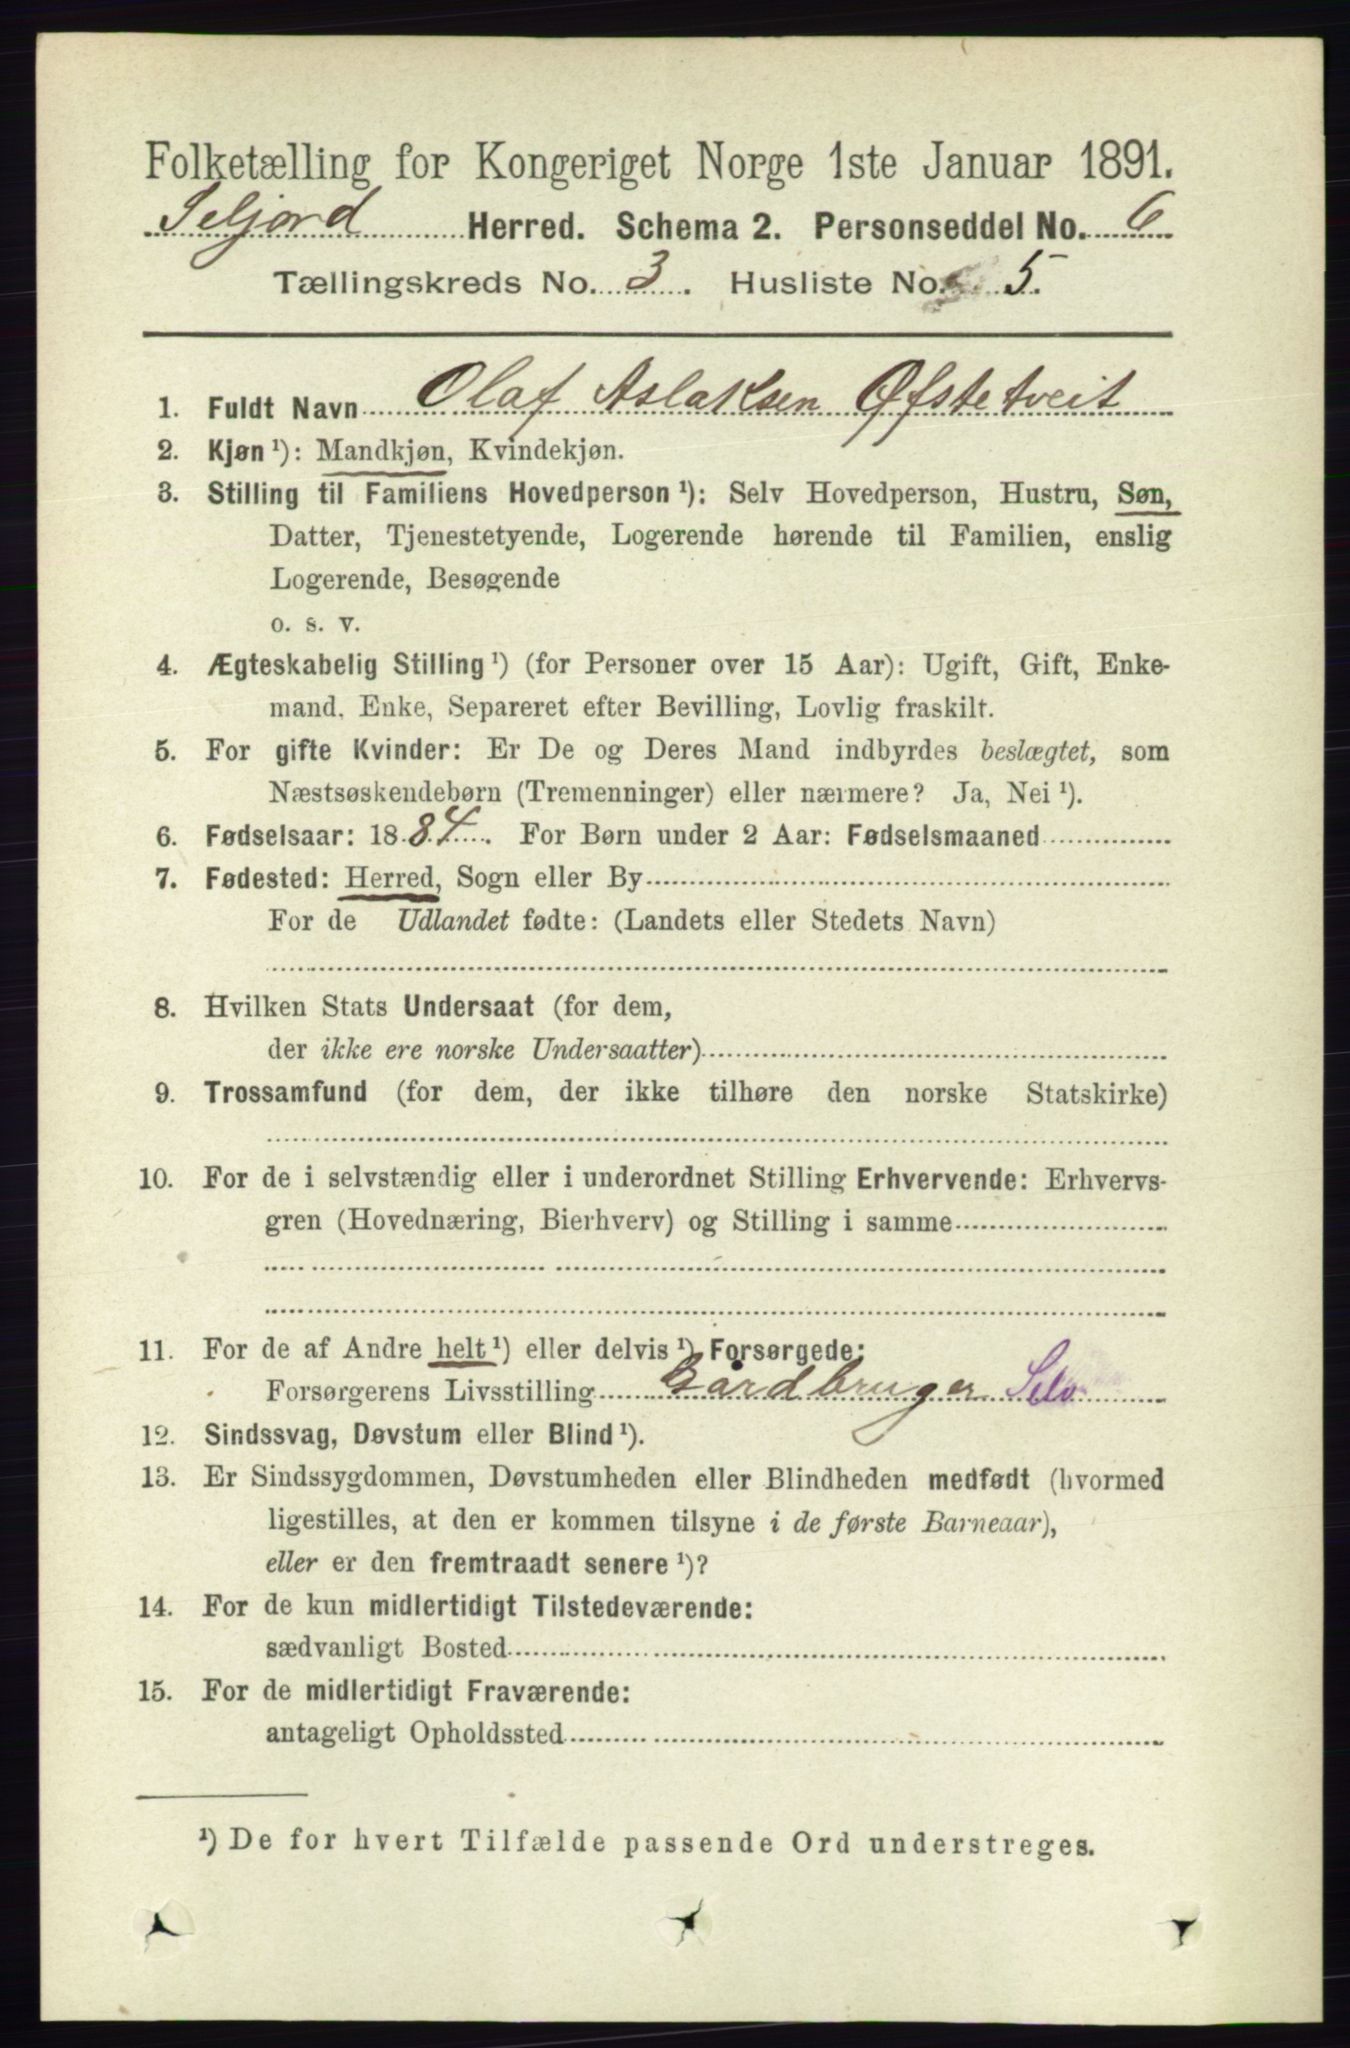 Folketælling for Kongeriget Norge 1ste Januar 1891.
Seljord Herred. Schema 2. Personseddel No. 6
Tællingskreds No. 3. Husliste No. 5.
1. Fuldt Navn Olaf Aslaksen Øfstetveit
2. Kjøn¹): Mandkjøn, Kvindekjøn.
3. Stilling til Familiens Hovedperson¹): Selv Hovedperson, Hustru, Søn,
Datter, Tjenestetyende, Logerende hørende til Familien, enslig
Logerende, Besøgende
o. s. v.
4. Ægteskabelig Stilling¹) (for Personer over 15 Aar): Ugift, Gift, Enke-
mand, Enke, Separeret efter Bevilling, Lovlig fraskilt.
5. For gifte Kvinder: Er De og Deres Mand indbyrdes beslægtet, som
Næstsøskendebørn (Tremenninger) eller nærmere? Ja, Nei¹).
6. Fødselsaar: 1884. For Børn under 2 Aar: Fødselsmaaned
7. Fødested: Herred, Sogn eller By
For de Udlandet fødte: (Landets eller Stedets Navn)
8. Hvilken Stats Undersaat (for dem,
der ikke ere norske Undersaatter)
9. Trossamfund (for dem, der ikke tilhøre den norske Statskirke)
10. For de i selvstændig eller i underordnet Stilling Erhvervende: Erhvervs-
gren (Hovednæring, Bierhverv) og Stilling i samme
11. For de af Andre helt¹) eller delvis¹) Forsørgede:
Forsørgerens Livsstilling Gårdbruger Selv
12. Sindssvag, Døvstum eller Blind¹).
13. Er Sindssygdommen, Døvstumheden eller Blindheden medfødt (hvormed
ligestilles, at den er kommen tilsyne i de første Barneaar),
eller er den fremtraadt senere¹)?
14. For de kun midlertidigt Tilstedeværende:
sædvanligt Bosted
15. For de midlertidigt Fraværende:
antageligt Opholdssted
¹) De for hvert Tilfælde passende Ord understreges.